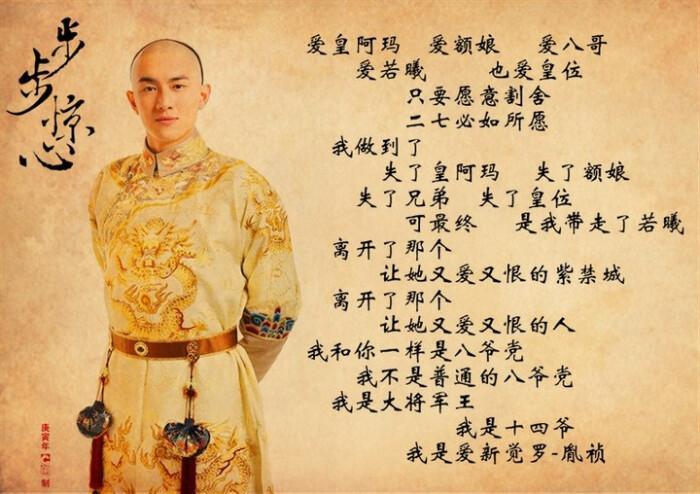 步步惊心
爱皇阿玛 爱额娘 爱八哥
爱若曦 也爱皇位
只要愿意割舍
二七必如所愿
我做到了
失了皇阿玛 失了额娘
失了兄弟 失了皇位
可最终 是我带走了若曦
离开了那个
让她又爱又恨的紫禁城
离开了那个
让她又爱又恨的人
我和你一样是八爷党
我不是普通的八爷党
我是大将军王
我是十四爷
我是爱新觉罗-胤祯
庚寅年 制